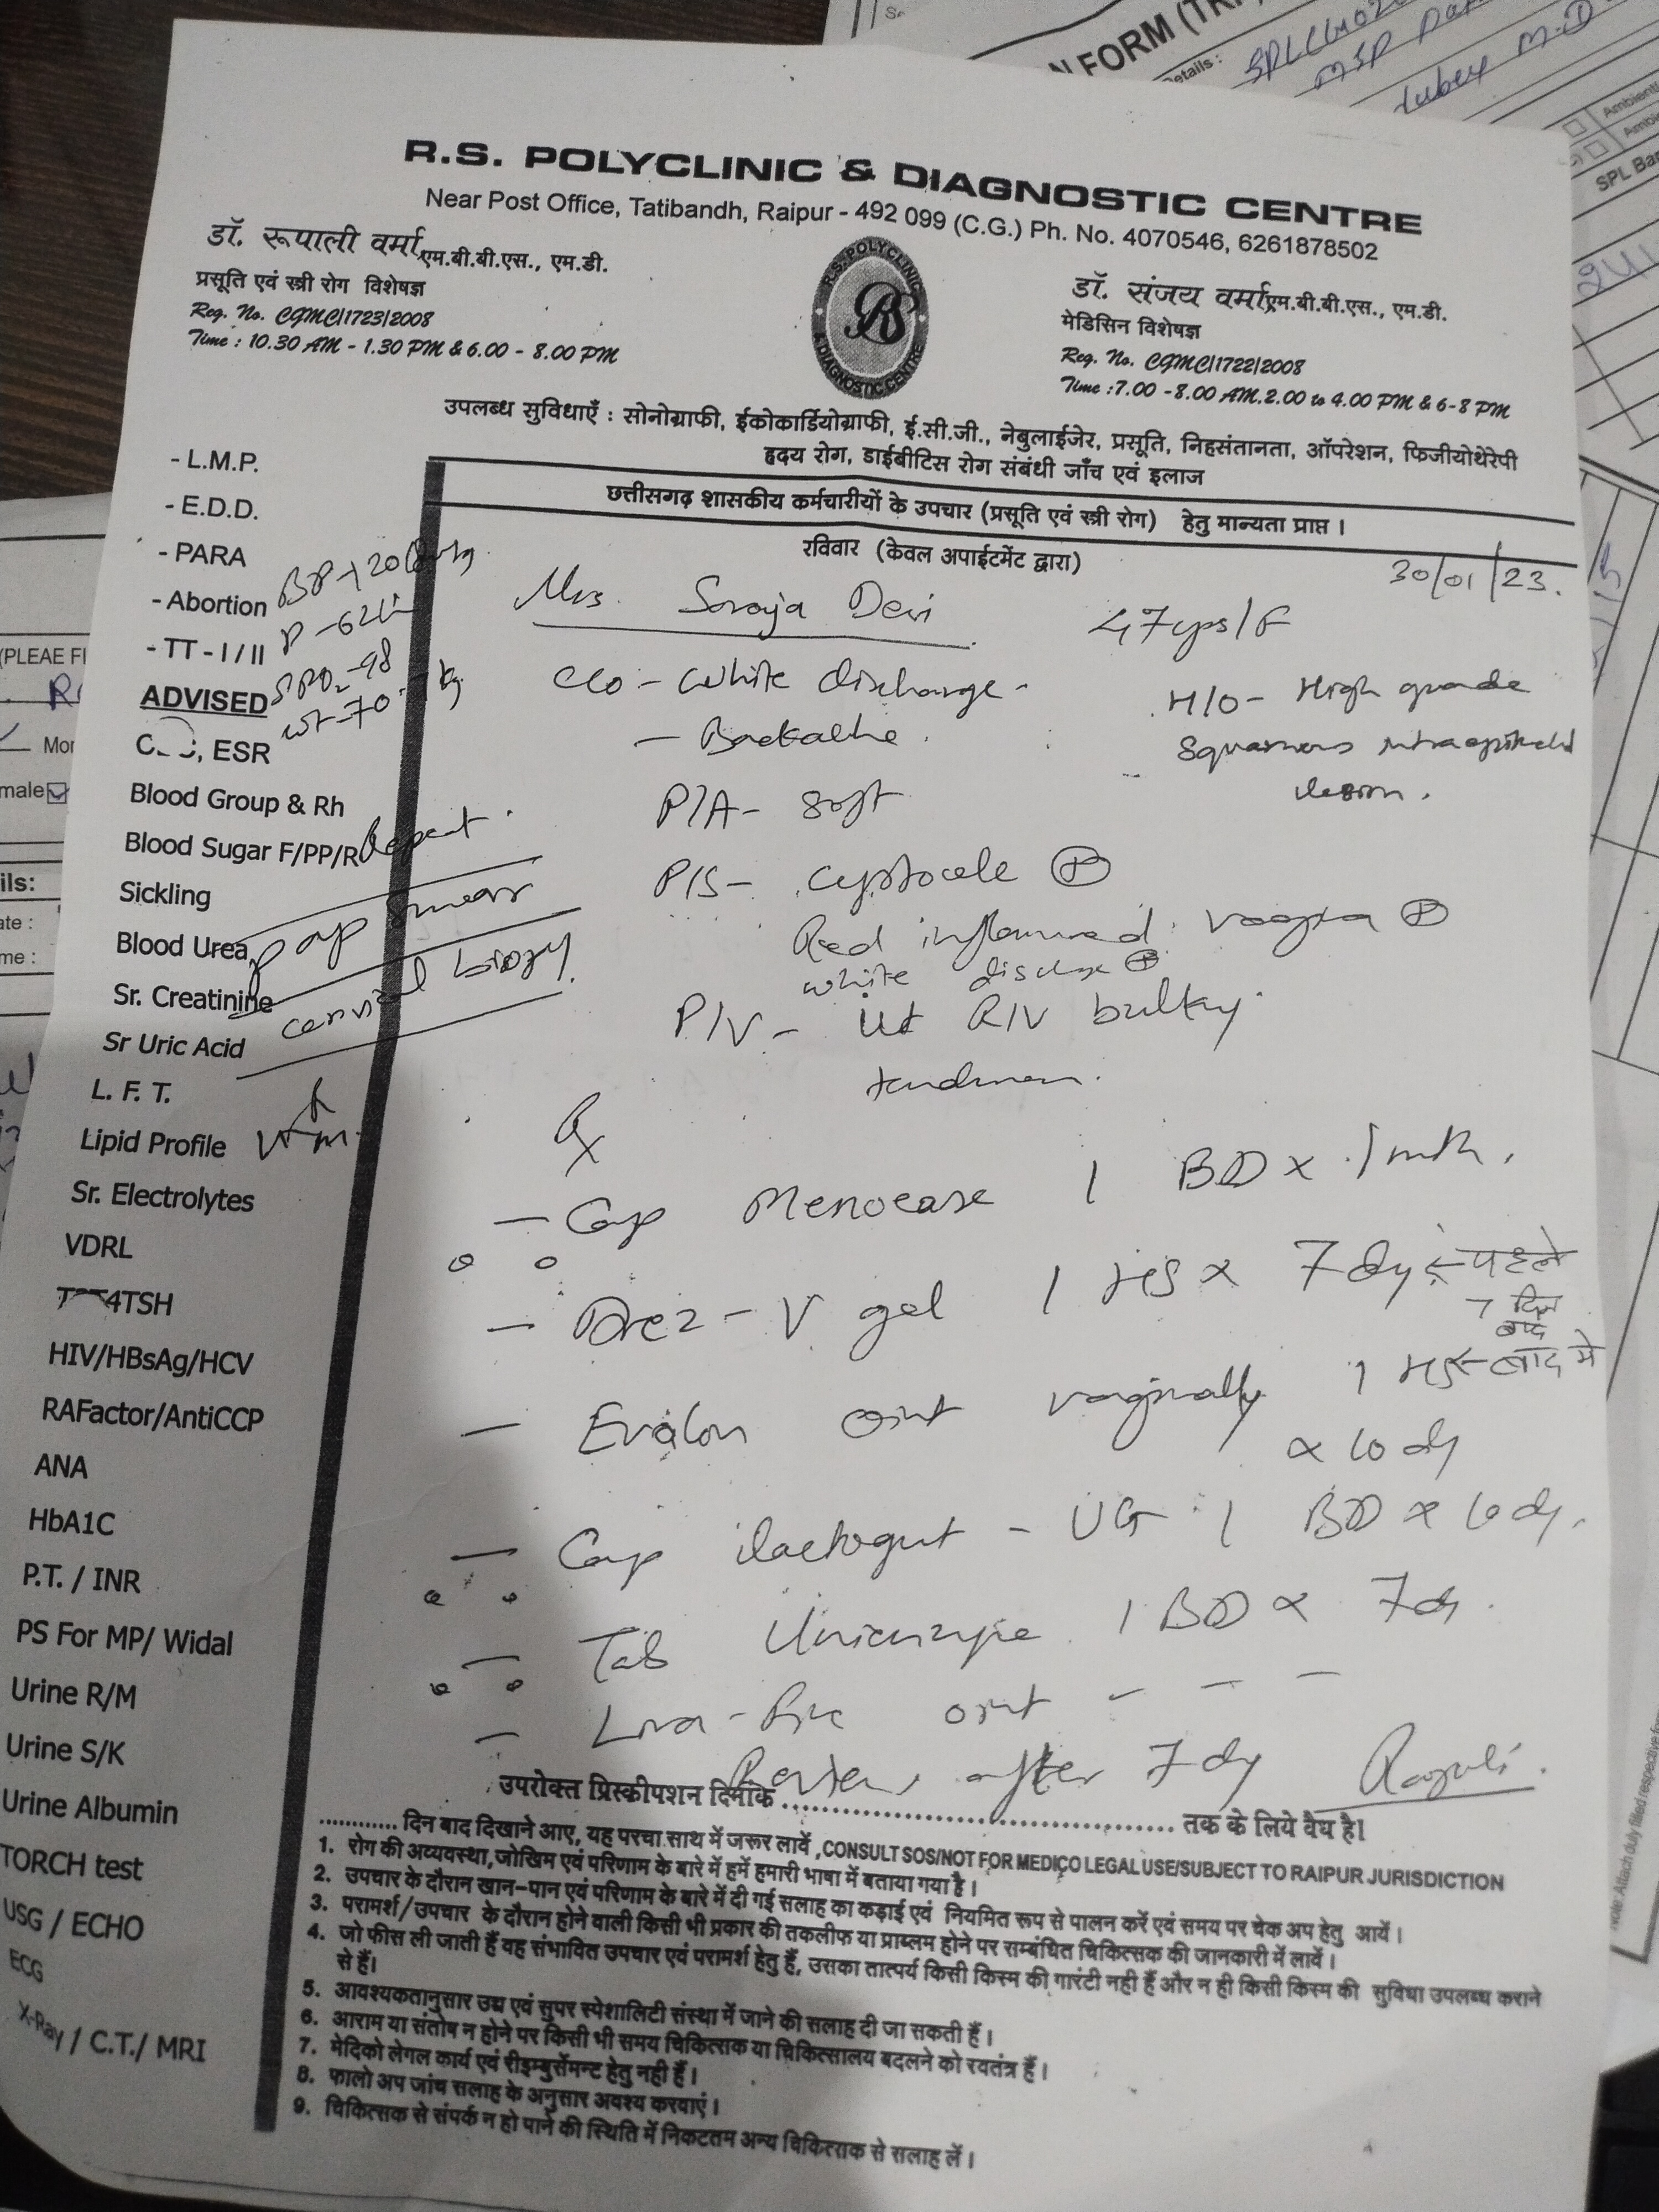 R.S. POLYCLINIC & DIAGNOSTIC CENTRE
Near Post Office, Tatibandh, Raipur - 492 099 (C.G.) Ph. No. 4070546, 6261878502
डॉ. रूपाली वर्मा एम.बी.बी.एस., एम.डी.
प्रसूति एवं स्त्री रोग विशेषज्ञ
Reg. No. CGMC/1723/2008
Time : 10.30 AM - 1.30 PM & 6.00 - 8.00 PM
R.S. POLYCLINIC
& DIAGNOSTIC CENTRE
RS
डॉ. संजय वर्मा एम.बी.बी.एस., एम.डी.
मेडिसिन विशेषज्ञ
Reg. No. CGMC/1722/2008
Time : 7.00 - 8.00 AM. 2.00 to 4.00 PM & 6-8 PM
उपलब्ध सुविधाएँ : सोनोग्राफी, ईकोकार्डियोग्राफी, ई.सी.जी., नेबुलाईजेर, प्रसूति, निहसंतानता, ऑपरेशन, फिजीयोथेरेपी
हृदय रोग, डाईबीटिस रोग संबंधी जाँच एवं इलाज
छत्तीसगढ़ शासकीय कर्मचारीयों के उपचार (प्रसूति एवं स्त्री रोग) हेतु मान्यता प्राप्त ।
रविवार (केवल अपाईटमेंट द्वारा)
30/01/23.
Mrs. Saroja Devi 47yrs/F
C/O - White discharge -
- Backache.
H/O - High grade
Squamous intraepithelial
lesion.
P/A - soft
P/S - cystocele (P)
Red inflammed vagina (P)
white discharge (+)
P/V - Ut R/V bulky
Rx
- Cap Menoease 1 BD x 1 mth.
- Drez - V gel 1 HS x 7 dy ← पहले
7 दिन
बाद
- Evalon oint vaginally 1 HS ← बाद मे
x 10 dy
- Cap lactogut - UG 1 BD x 10 dy.
- Tab 1 BD x 7 dy.
- oint - - -
Review after 7 dy
- L.M.P.
- E.D.D.
- PARA
- Abortion
- TT - I / II
BP - 120
P - 62
SPO2 - 98
wt - 70 kg
ADVISED
ESR
Blood Group & Rh
Blood Sugar F/PP/R
Repeat.
Sickling
pap smear
Blood Urea
cervical biopsy
Sr. Creatinine
Sr Uric Acid
L. F. T.
Lipid Profile
Sr. Electrolytes
VDRL
T3T4TSH
HIV/HBsAg/HCV
RAFactor/AntiCCP
ANA
HbA1C
P.T. / INR
PS For MP/ Widal
Urine R/M
Urine S/K
Urine Albumin
TORCH test
USG / ECHO
ECG
X-Ray / C.T./ MRI
उपरोक्त प्रिस्कीपशन दिमांक .................................... तक के लिये वैघ है।
............ दिन बाद दिखाने आए, यह परचा साथ में जरूर लावें ,CONSULT SOS/NOT FOR MEDICO LEGAL USE/SUBJECT TO RAIPUR JURISDICTION
1. रोग की अव्यवस्था, जोखिम एवं परिणाम के बारे में हमें हमारी भाषा में बताया गया है ।
2. उपचार के दौरान खान-पान एवं परिणाम के बारे में दी गई सलाह का कड़ाई एवं नियमित रूप से पालन करें एवं समय पर चेक अप हेतु आयें ।
3. परामर्श/उपचार के दौरान होने वाली किसी भी प्रकार की तकलीफ या प्राब्लम होने पर सम्बंधित चिकित्सक की जानकारी में लावें ।
4. जो फीस ली जाती हैं वह संभावित उपचार एवं परामर्श हेतु हैं, उसका तात्पर्य किसी किस्म की गारंटी नही हैं और न ही किसी किस्म की सुविधा उपलब्ध कराने
से हैं।
5. आवश्यकतानुसार उच्च एवं सुपर स्पेशालिटी संस्था में जाने की सलाह दी जा सकती हैं ।
6. आराम या संतोष न होने पर किसी भी समय चिकित्सक या चिकित्सालय बदलने को स्वतंत्र हैं ।
7. मेदिको लेगल कार्य एवं रीइम्बुर्सेमन्ट हेतु नही हैं ।
8. फालो अप जांच सलाह के अनुसार अवश्य करवाएं ।
9. चिकित्सक से संपर्क न हो पाने की स्थिति में निकटतम अन्य चिकित्सक से सलाह लें ।